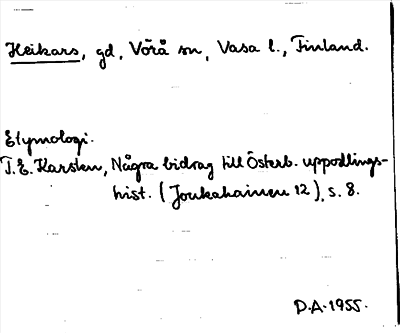 Heikars, gd, Vörå sn, Vasa l., Finland.
Etymologi.
T.E. Karsten, Några bidrag till Österb. uppodlings-
hist. (Joukahainen 12), s. 8.
D.A. 1955.